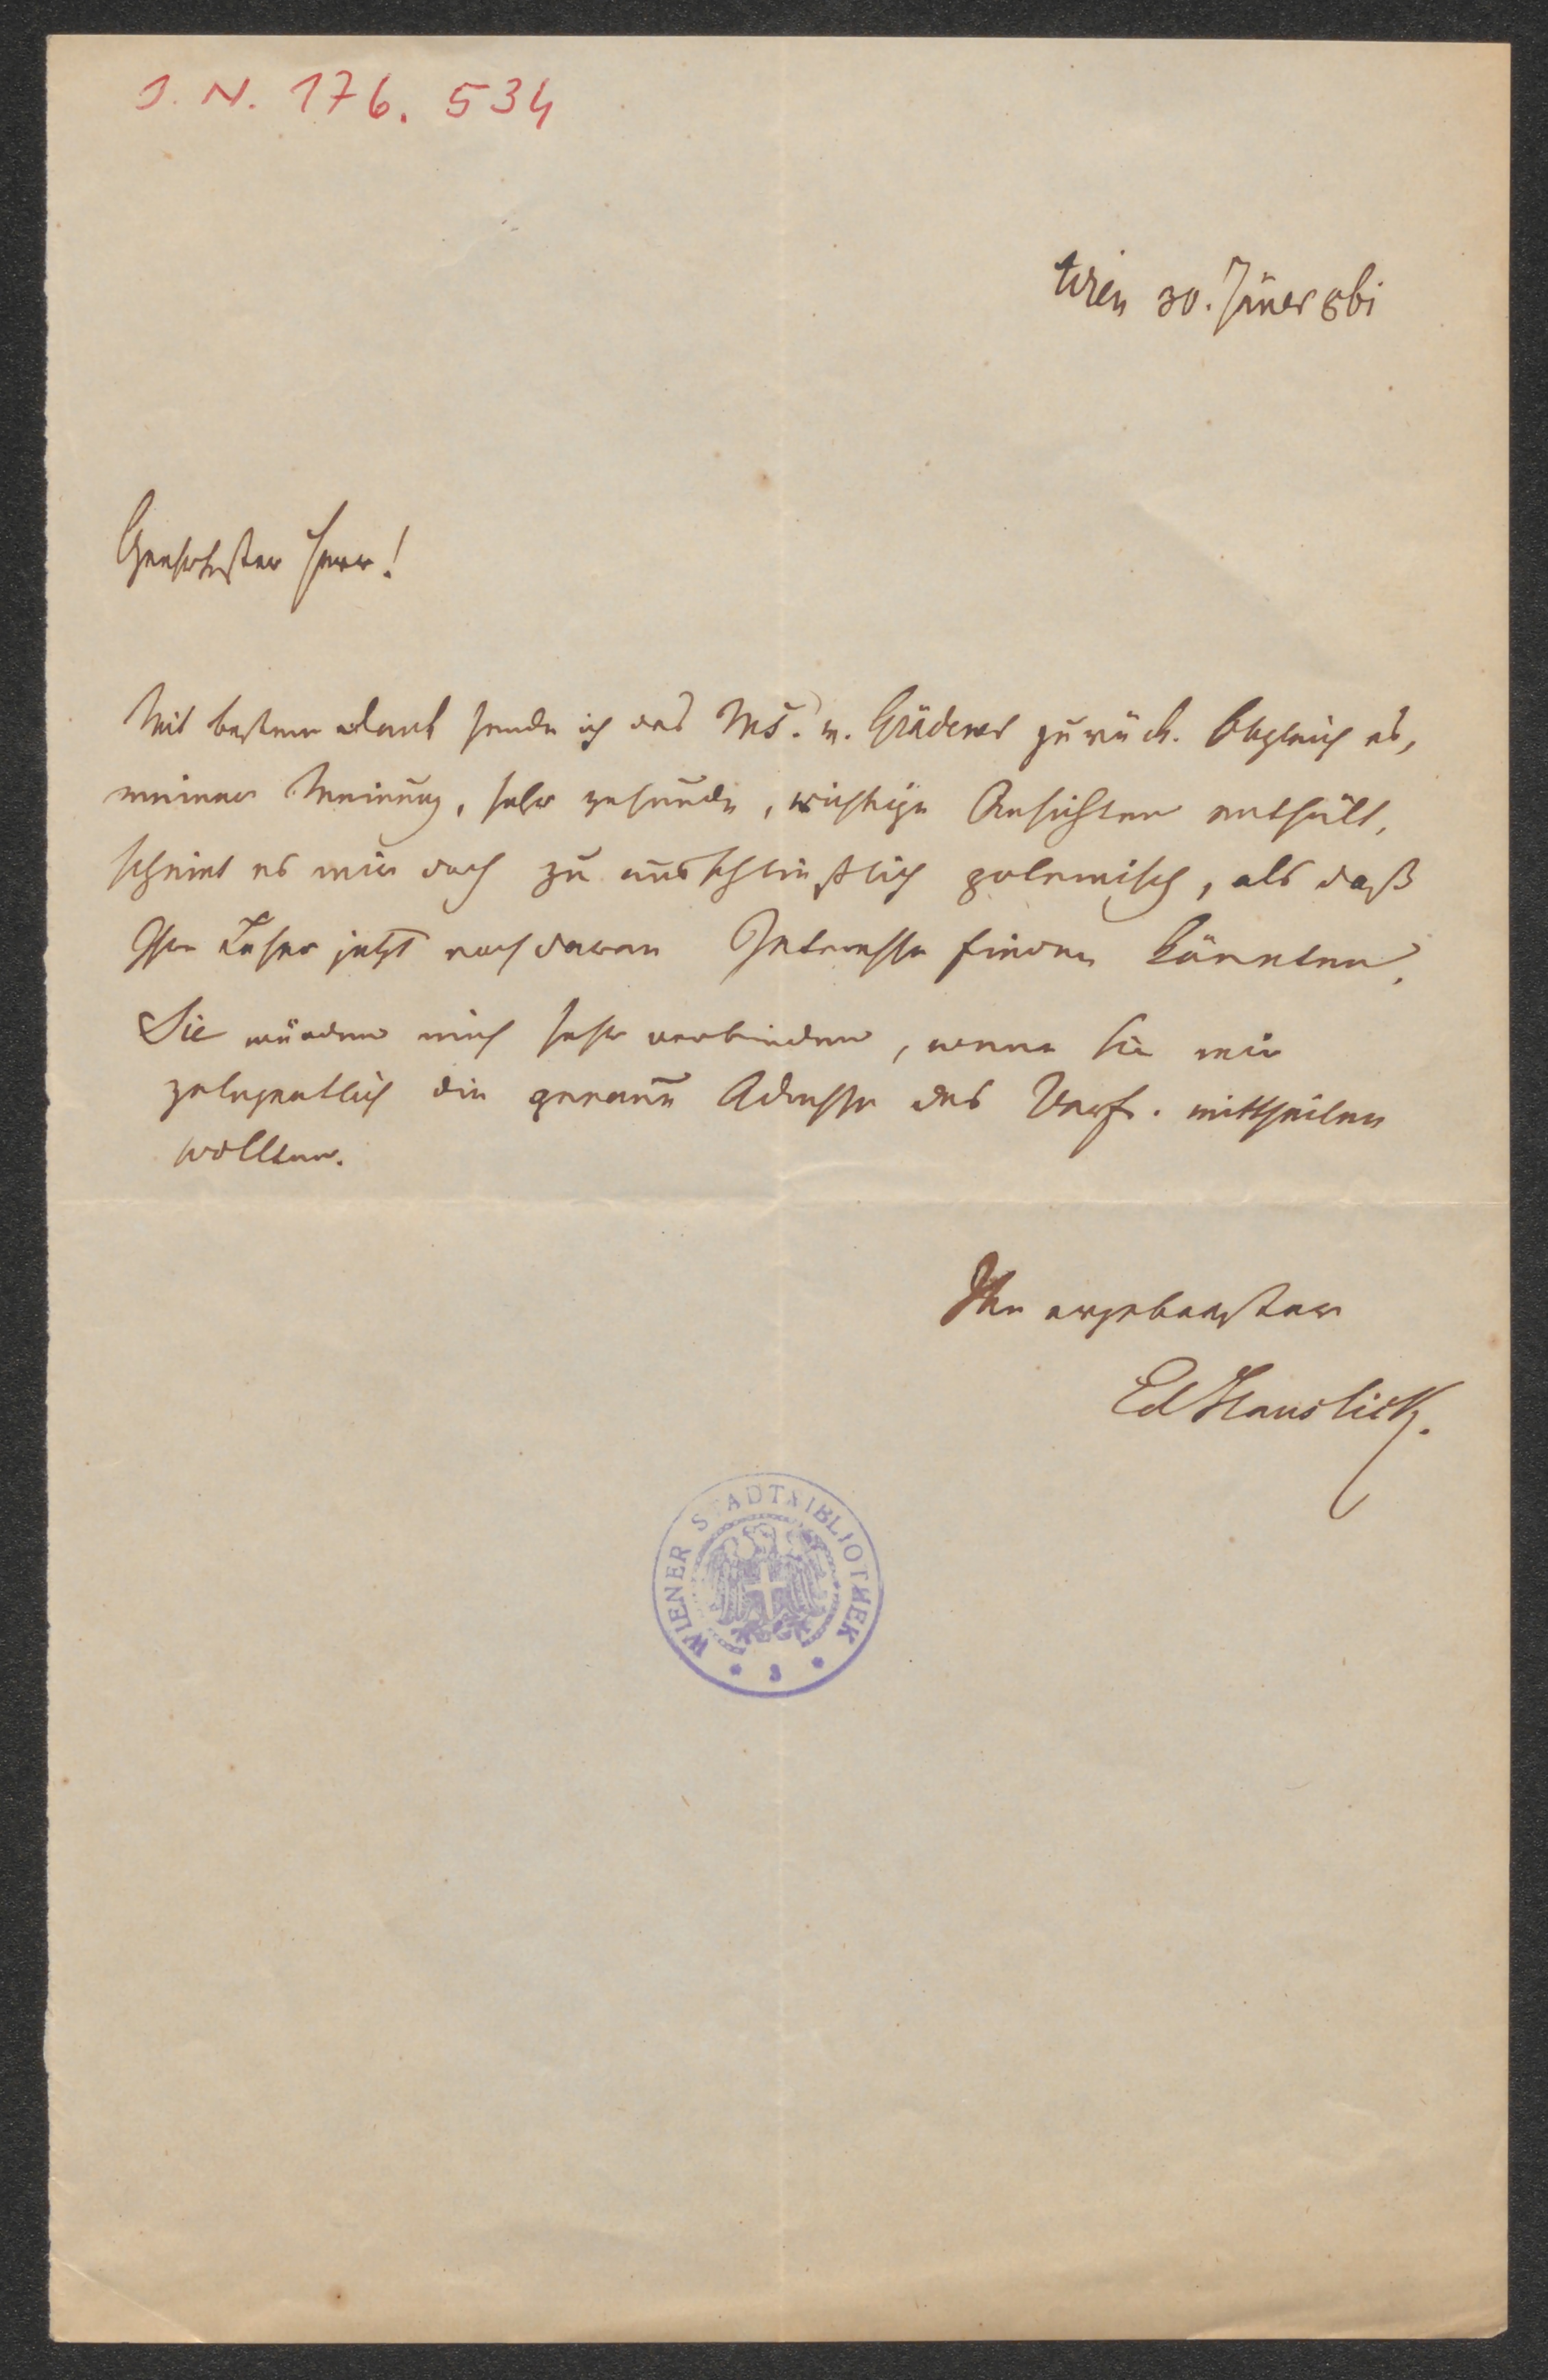 J. N. 176. 534
Wien 30. Jäner 861
Geehrtester Herr!
Mit bestem Dank sende ich das Ms. v. Grädener zurück. Obgleich es,
meiner Meinung, sehr gesunde, richtige Ansichten enthält,
scheint es mir doch zu ausschließlich polemisch, als daß
Ihre Leser jetzt noch daran Interesse finden könnten.
Sie würden mich sehr verbinden, wenn Sie mir
gelegentlich die genaue Adresse des Verf. mittheilen
wollten.
Ihr ergebenster
Ed Hanslick.
WIENER STADTBIBLIOTHEK